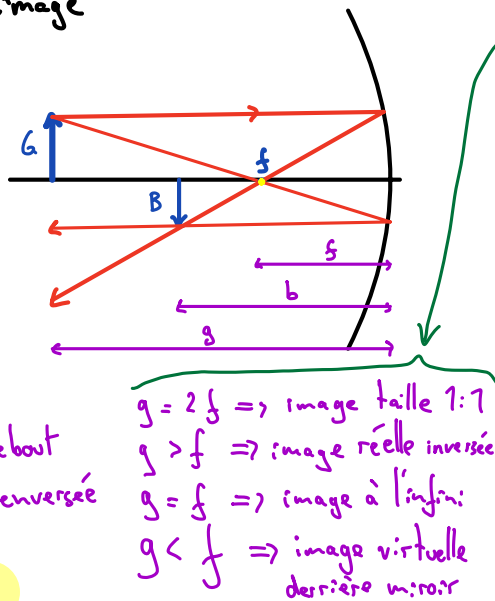 image
G
f
B
f
b
g
g = 2f => image taille 1:1
g > f => image réelle inversée
g = f => image à l'infini
g < f => image virtuelle
derrière miroir